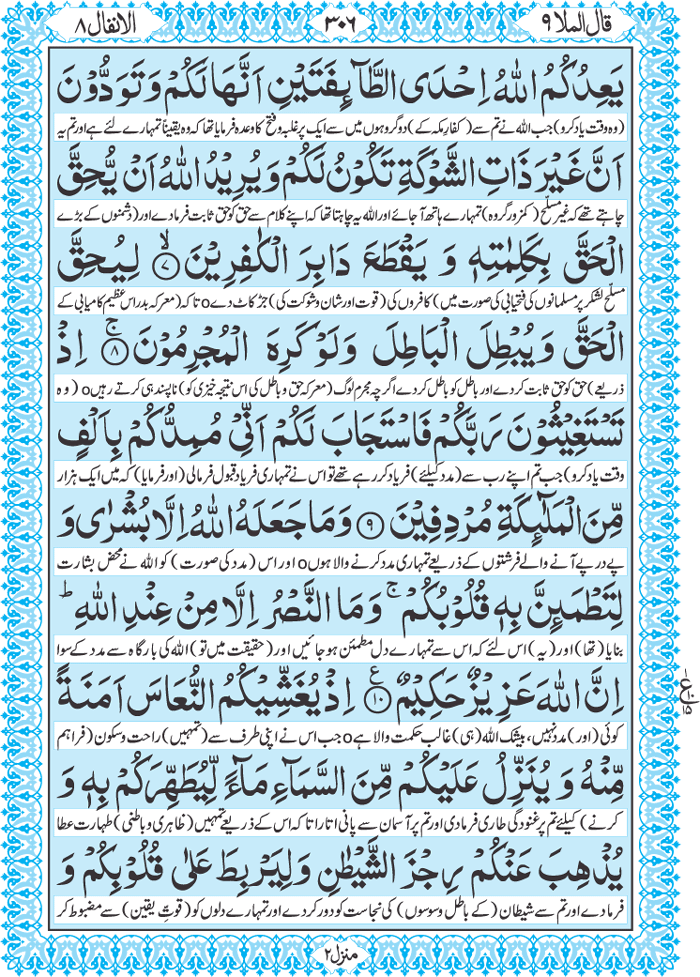 قال الملا ۹ ۳۰۶ الانفال ۸
يَعِدُكُمُ اللّٰهُ اِحْدَى الطَّآىِٕفَتَيْنِ اَنَّهَا لَكُمْ وَ تَوَدُّوْنَ
(وہ وقت یاد کرو) جب اللہ نے تم سے (کفارِ مکہ کے) دو گروہوں میں سے ایک پر غلبہ و فتح کا وعدہ فرمایا تھا کہ وہ یقیناً تمہارے لئے ہے اور تم یہ
اَنَّ غَيْرَ ذَاتِ الشَّوْكَةِ تَكُوْنُ لَكُمْ وَ يُرِيْدُ اللّٰهُ اَنْ يُّحِقَّ
چاہتے تھے کہ غیر مسلح (کمزور گروہ) تمہارے ہاتھ آ جائے اور اللہ یہ چاہتا تھا کہ اپنے کلام سے حق کو حق ثابت فرما دے اور (دشمنوں کے بڑے
الْحَقَّ بِكَلِمٰتِهٖ وَ يَقْطَعَ دَابِرَ الْكٰفِرِيْنَ ۙ﴿۷﴾ لِيُحِقَّ
مسلح لشکر پر مسلمانوں کی فتحیابی کی صورت میں) کافروں کی (قوت اور شان و شوکت کی) جڑ کاٹ دے o تاکہ (معرکہ بدر اس عظیم کامیابی کے
الْحَقَّ وَ يُبْطِلَ الْبَاطِلَ وَلَوْ كَرِهَ الْمُجْرِمُوْنَ ۚ﴿۸﴾ اِذْ
ذریعے) حق کو حق ثابت کر دے اور باطل کو باطل کر دے اگرچہ مجرم لوگ (معرکہ حق و باطل کی اس نتیجہ خیزی کو) ناپسند ہی کرتے رہیں o (وہ
تَسْتَغِيْثُوْنَ رَبَّكُمْ فَاسْتَجَابَ لَكُمْ اَنِّيْ مُمِدُّكُمْ بِاَلْفٍ
وقت یاد کرو) جب تم اپنے رب سے (مدد کیلئے) فریاد کر رہے تھے تو اس نے تمہاری فریاد قبول فرمالی (اور فرمایا) کہ میں ایک ہزار
مِّنَ الْمَلٰٓىِٕكَةِ مُرْدِفِيْنَ ﴿۹﴾ وَمَا جَعَلَهُ اللّٰهُ اِلَّا بُشْرٰى وَ
پے در پے آنے والے فرشتوں کے ذریعے تمہاری مدد کرنے والا ہوں o اور اس (مدد کی صورت) کو اللہ نے محض بشارت
لِتَطْمَىِٕنَّ بِهٖ قُلُوْبُكُمْ ۚ وَمَا النَّصْرُ اِلَّا مِنْ عِنْدِ اللّٰهِ ؕ
بنایا (تھا) اور (یہ) اس لئے کہ اس سے تمہارے دل مطمئن ہو جائیں اور (حقیقت میں تو) اللہ کی بارگاہ سے مدد کے سوا
اِنَّ اللّٰهَ عَزِيْزٌ حَكِيْمٌ ﴿۱۰﴾ ع اِذْ يُغَشِّيْكُمُ النُّعَاسَ اَمَنَةً
کوئی (اور) مدد نہیں، بیشک اللہ (ہی) غالب حکمت والا ہے o جب اس نے اپنی طرف سے (تمہیں) راحت و سکون (فراہم
مِّنْهُ وَ يُنَزِّلُ عَلَيْكُمْ مِّنَ السَّمَآءِ مَآءً لِّيُطَهِّرَكُمْ بِهٖ وَ
کرنے) کیلئے تم پر غنودگی طاری فرما دی اور تم پر آسمان سے پانی اتارا تاکہ اس کے ذریعے تمہیں (ظاہری و باطنی) طہارت عطا
يُذْهِبَ عَنْكُمْ رِجْزَ الشَّيْطٰنِ وَلِيَرْبِطَ عَلٰى قُلُوْبِكُمْ وَ
فرما دے اور تم سے شیطان (کے باطل وسوسوں) کی نجاست کو دور کر دے اور تمہارے دلوں کو (قوتِ یقین) سے مضبوط کر
منزل ۲